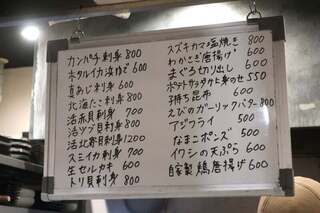 カンパチ刺身 800
ホタルイカ沖ゆで 600
真あじ刺身 600
北海たこ刺身 800
活赤貝刺身 700
活ツブ貝刺身 800
活北寄刺身 1200
スミイカ刺身 700
生セルカキ 600
トリ貝刺身 800
スズキカマ塩焼き 800
わかさぎ唐揚げ 600
まぐろ切り出し 600
ポテトサラダタケと身のせ 550
子持ち昆布 600
えびのガーリックバター 800
アジフライ 500
なまこポンズ 500
イワシの天ぷら 600
自家製 鶏唐揚げ 600